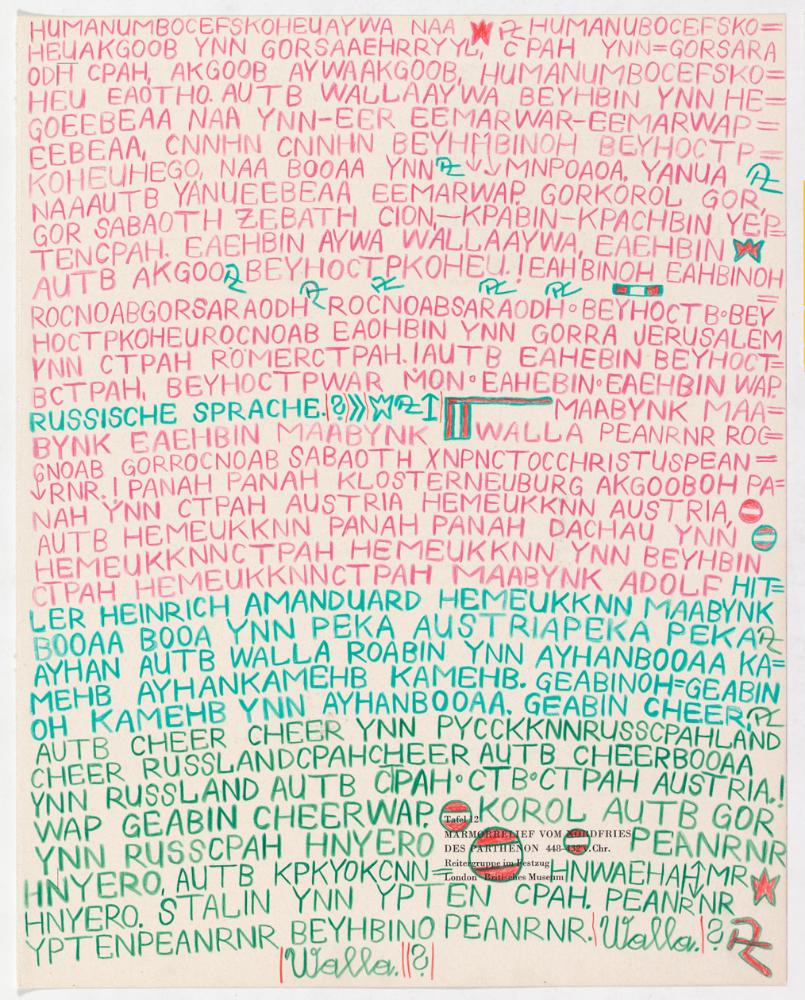 HUMANUMBOCEFSKOHEUAYWA NAA HUMANUBOCEFSKO=
HEUAKGOOB YNN GORSAAEHRRYYL, CPAH YNN=GORSARA
ODH CPAH, AKGOOB AYWAAKGOOB, HUMANUMBOCEFSKO=
HEU EAOTHO. AUTB WALLAAY'WA BEYHBIN YNN HE=
GOEEBEAA NAA YNN-EER EEMARWAR-EEMARWAP=
EEBEAA, CNNHN CNNHN BEYHMBINOH BEYHOCTP=
KOHEUHEGO, NAA BOOAA YNN MNPOAOA. YANUA
NAAAUTB YANUEEBEAA EEMARWAP. GORKOROL GOR,
GOR SABAOTH ZEBATH CION,—KPABIN-KPACHBIN YEP=
TENCPAH. EAEHBIN AYWA WALLAAYWA, EAEHBIN
AUTB AKGOO BEYHOCTPKOHEU.! EAHBINOH EAHBINOH=
ROCNOABGORSARAODH ROCNOABSARAODH°BEYHOCTB°BEY
HOCTPKOHEUROCNOAB EAOHBIN YNN GORRA JERUSALEM
YNN CTPAH RÖMERCTPAH.!AUTB EAHEBIN BEYHOCT=
BCTPAH, BEYHOCTPWAR MON°EAHEBIN°EAEHBIN WAP.
RUSSISCHE SPRACHE. MAABYNK MAA=
BYNK EAEHBIN MAABYNK WALLA PEANRNR ROC=
GNOAB GORROCNOAB SABAOTH XNPNCTOCCHRISTUSPEAN=
RNR.! PANAH PANAH KLOSTERNEUBURG AKGOOBOH PA=
NAH YNN CTPAH AUSTRIA HEMEUKKNN AUSTRIA,
AUTB HEMEUKKNN PANAH PANAH DACHAU YNN
HEMEUKKNNCTPAH HEMEUKKNN YNN BEYHBIN
CTPAH HEMEUKKNNCTPAH MAABYNK ADOLF HIT=
LER HEINRICH AMANDUARD HEMEUKKNN MAABYNK
BOOAA BOOA YNN PEKA AUSTRIAPEKA PEKA
AYHAN AUTB WALLA ROABIN YNN AYHANBOOAA KA=
MEHB AYHANKAMEHB KAMEHB. GEABINOH=GEABIN
OH KAMEHB YNN AYHANBOOAA. GEABIN CHEER,
AUTB CHEER CHEER YNN PYCCKKNNRUSSCPAHLAND
CHEER RUSSLANDCPAHCHEER AUTB CHEERBOOAA
YNN RUSSLAND AUTB CPAH°CTB°CTPAH AUSTRIA.!
WAP GEABIN CHEERWAP. KOROL AUTB GOR
Tafel 12
MARMORRELIEF VOM NORDFRIES
YNN RUSSCPAH HNYERO PEANRNR
DES PARTHENON 448-432 v. Chr.
Reitergruppe im Festzug
HNYERO, AUTB KPKYOKCNN= INWAEHAHMR
London Britisches Museum
HNYERO. STALIN YNN YPTEN CPAH. PEANRNR
YPTENPEANRNR BEYHBINO PEANRNR. Walla. ?
Walla. ?